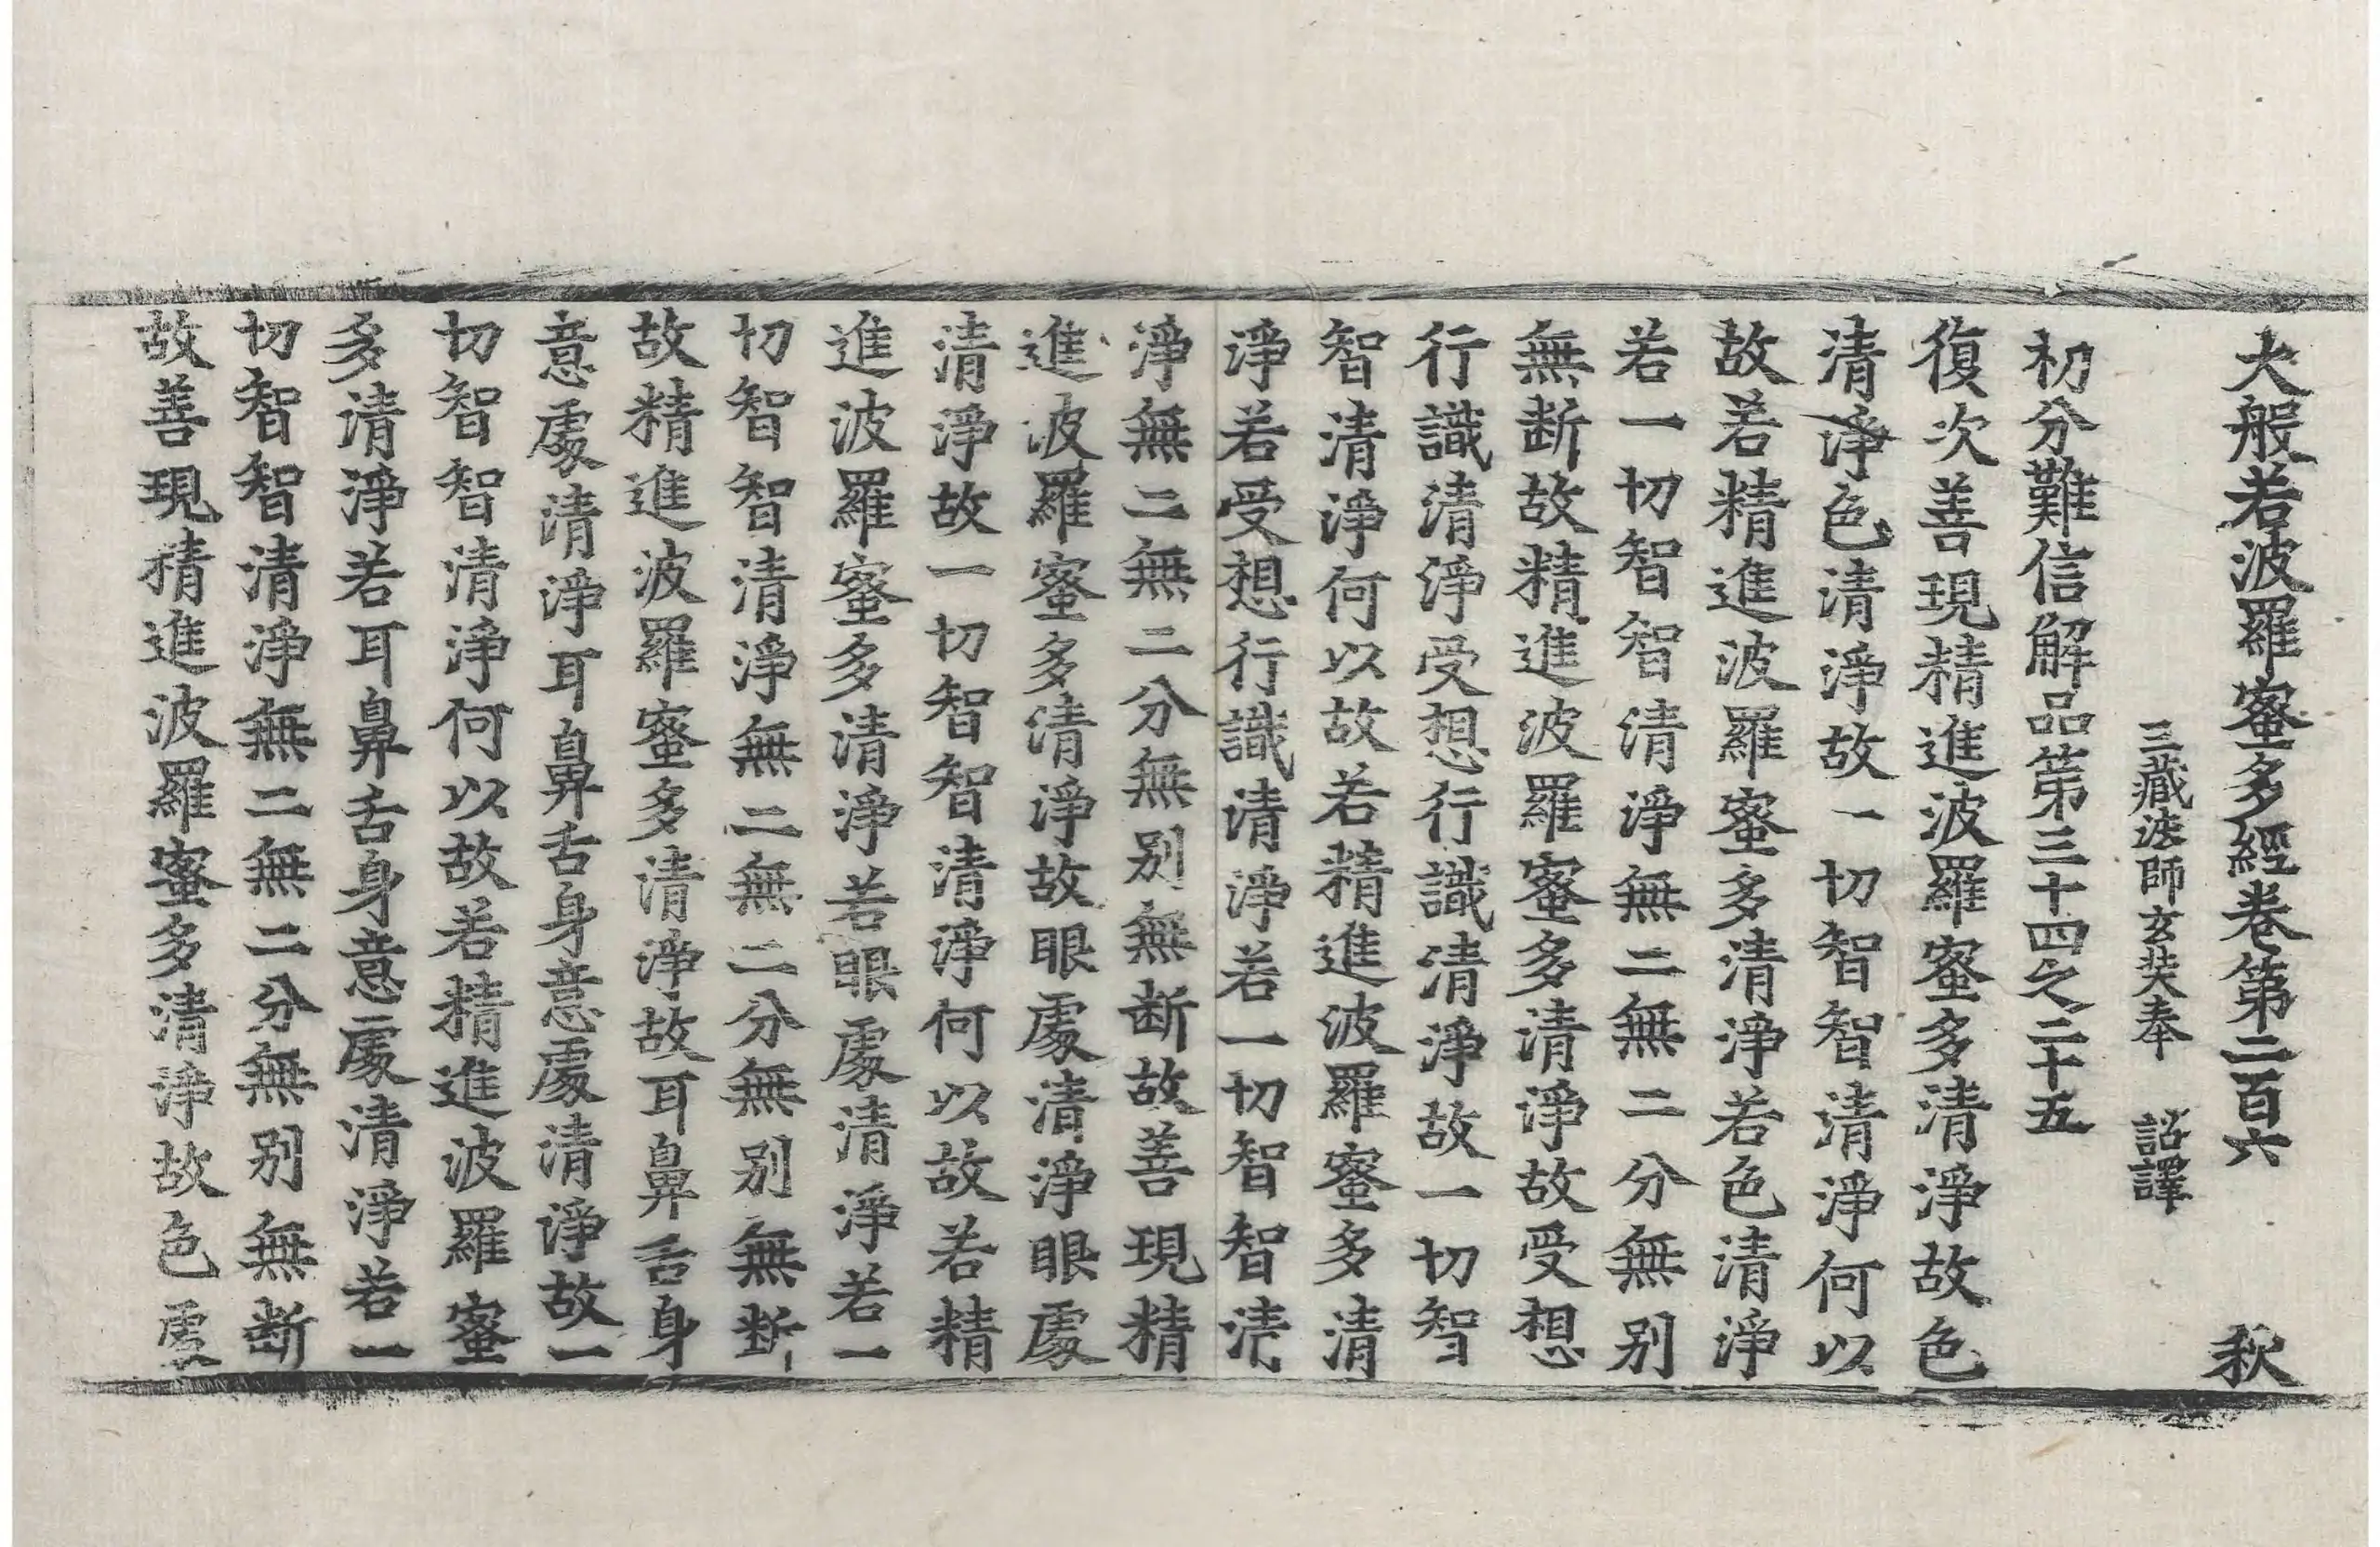 大般若波羅蜜多經卷第二百六　秋
三藏法師玄奘奉　詔譯
初分難信解品第三十四之二十五
復次善現精進波羅蜜多清淨故色
清淨色清淨故一切智智清淨何以
故若精進波羅蜜多清淨若色清淨
若一切智智清淨無二無二分無別
無断故精進波羅蜜多清淨故受想
行識清淨受想行識清淨故一切智
智清淨何以故若精進波羅蜜多清
淨若受想行識清淨若一切智智清
淨無二無二分無別無断故善現精
進波羅蜜多清淨故眼處清淨眼處
清淨故一切智智清淨何以故若精
進波羅蜜多清淨若眼處清淨若一
切智智清淨無二無二分無別無断
故精進波羅蜜多清淨故耳鼻舌身
意處清淨耳鼻舌身意處清淨故一
切智智清淨何以故若精進波羅蜜
多清淨若耳鼻舌身意處清淨若一
切智智清淨無二無二分無別無断
故善現精進波羅蜜多清淨故色處